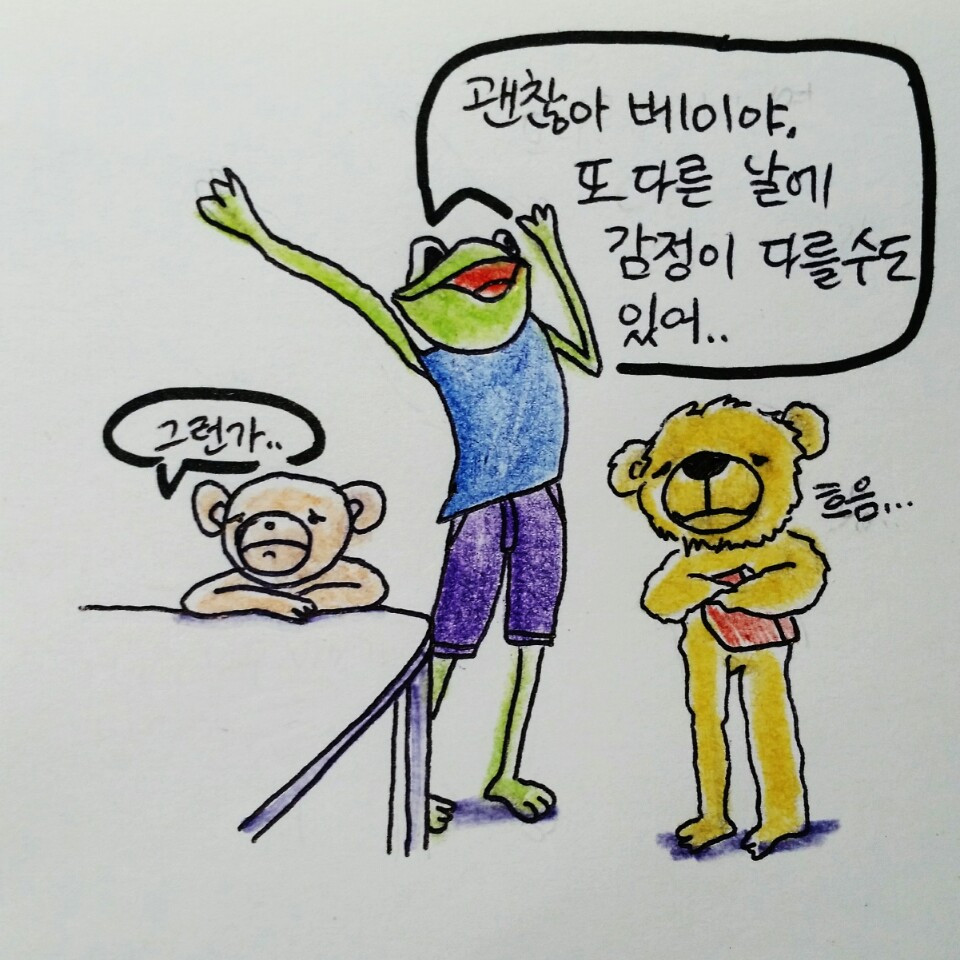 괜찮아 베이야.
또 다른 날에
감정이 다를수도
있어..
그런가..
흐음...